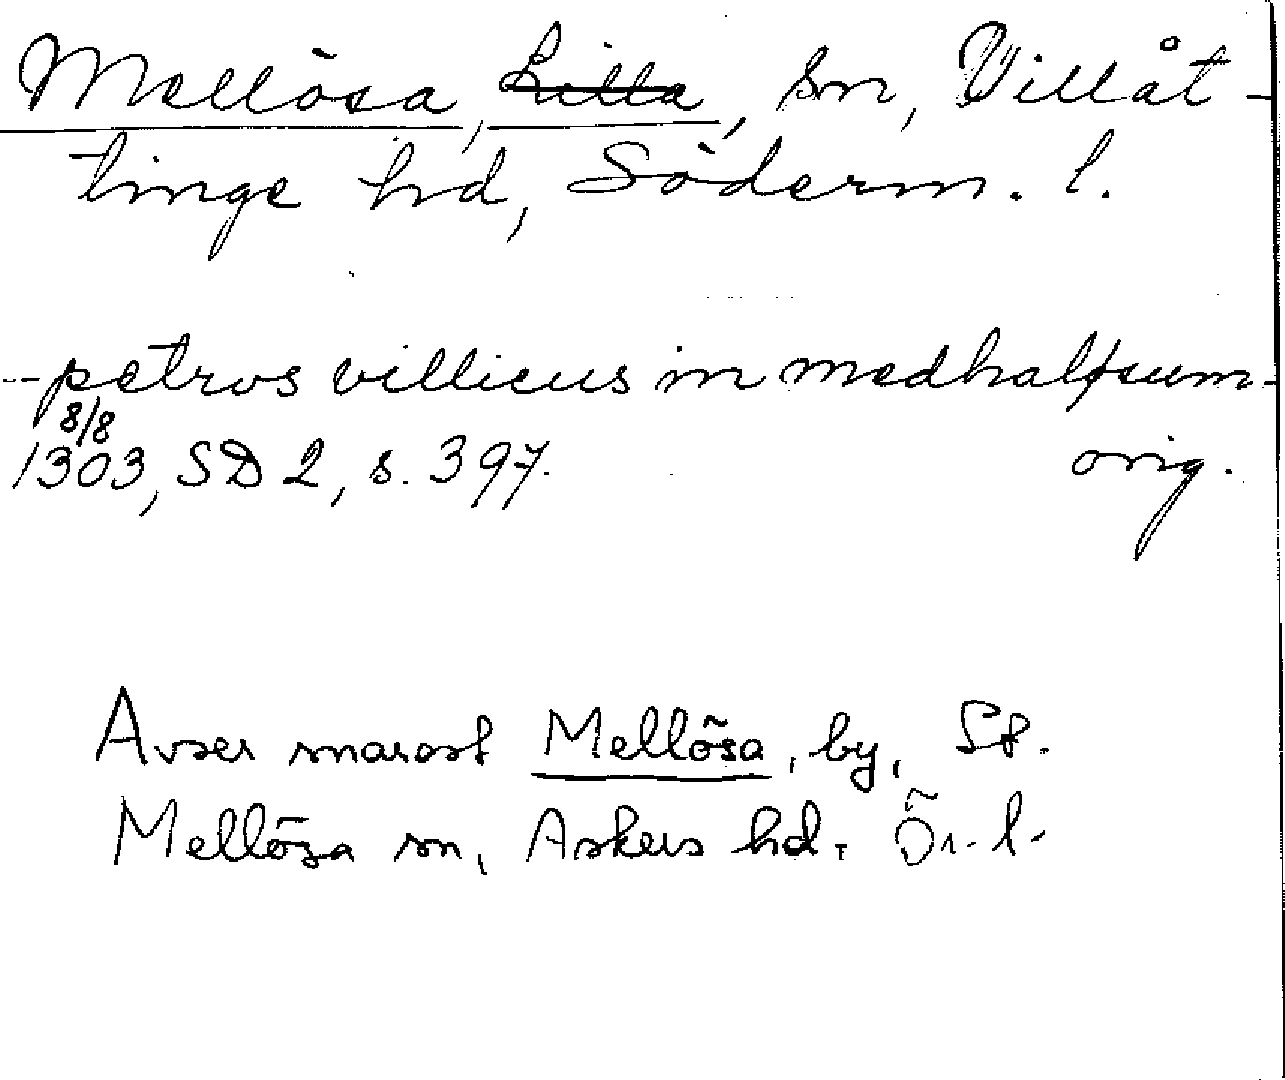 Mellösa, Lilla, sn, Villåt-
tinge hd, Söderm. l.
--petrus villicus in medhalfsum-
8/8
1303, SD 2, s. 397. orig.
Avser snarast Mellösa, by, St.
Mellösa sn, Askers hd. Ör. l.